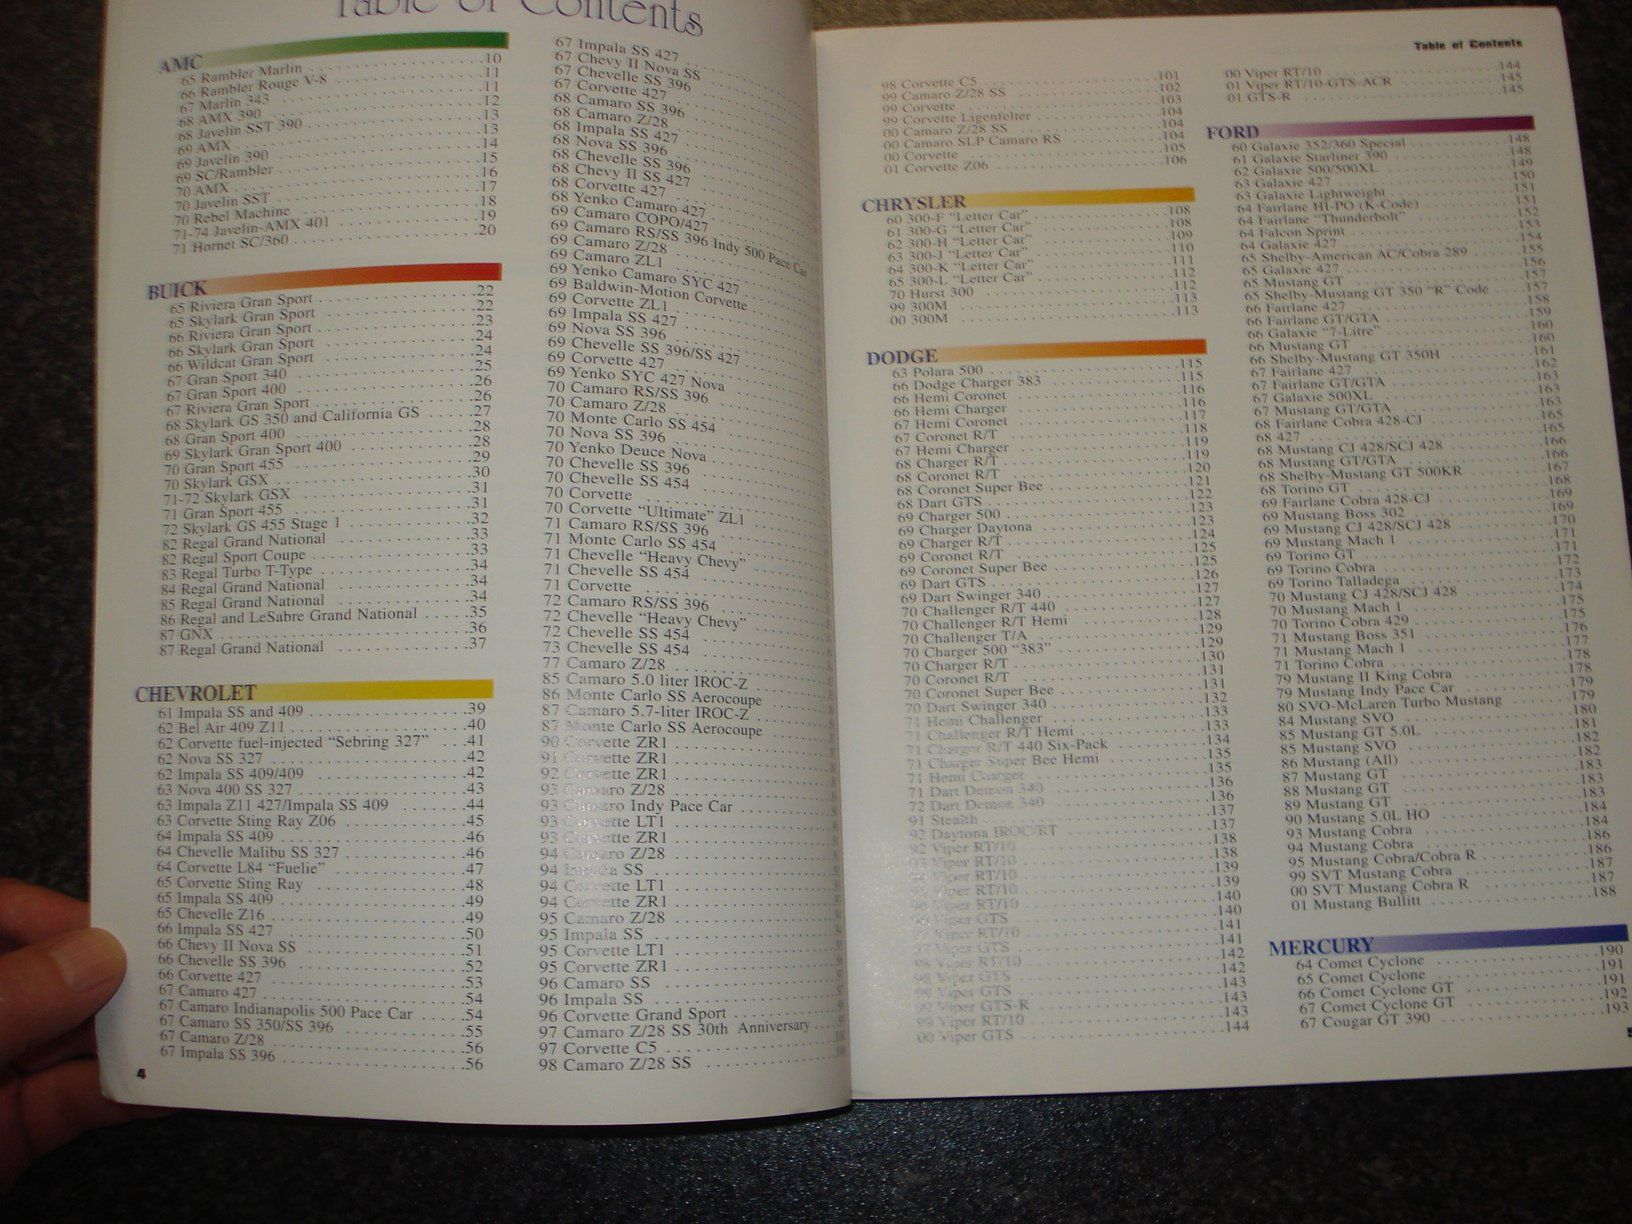 Table of Contents
AMC
65 Rambler Marlin 10
66 Rambler Rouge V-8 11
67 Marlin 343 11
68 AMX 390 12
68 Javelin SST 390 13
69 AMX 13
69 Javelin 390 14
69 SC/Rambler 15
70 AMX 16
70 Javelin SST 17
70 Rebel Machine 18
71-74 Javelin-AMX 401 19
71 Hornet SC/360 20
BUICK
65 Riviera Gran Sport 22
65 Skylark Gran Sport 22
66 Riviera Gran Sport 23
66 Skylark Gran Sport 24
66 Wildcat Gran Sport 24
67 Gran Sport 340 25
67 Gran Sport 400 26
67 Riviera Gran Sport 26
68 Skylark GS 350 and California GS 27
68 Gran Sport 400 28
69 Skylark Gran Sport 400 28
70 Gran Sport 455 29
70 Skylark GSX 30
71-72 Skylark GSX 31
71 Gran Sport 455 31
72 Skylark GS 455 Stage 1 32
82 Regal Grand National 33
82 Regal Sport Coupe 33
83 Regal Turbo T-Type 34
84 Regal Grand National 34
85 Regal Grand National 34
86 Regal and LeSabre Grand National 35
87 GNX 36
87 Regal Grand National 37
CHEVROLET
61 Impala SS and 409 39
62 Bel Air 409 Z11 40
62 Corvette fuel-injected “Sebring 327” 41
62 Nova SS 327 42
62 Impala SS 409/409 42
63 Nova 400 SS 327 43
63 Impala Z11 427/Impala SS 409 44
63 Corvette Sting Ray Z06 45
64 Impala SS 409 46
64 Chevelle Malibu SS 327 46
64 Corvette L84 “Fuelie” 47
65 Corvette Sting Ray 48
65 Impala SS 409 49
65 Chevelle Z16 49
66 Impala SS 427 50
66 Chevy II Nova SS 51
66 Chevelle SS 396 52
66 Corvette 427 53
67 Camaro 427 54
67 Camaro Indianapolis 500 Pace Car 54
67 Camaro SS 350/SS 396 55
67 Camaro Z/28 56
67 Impala SS 396 56
4
67 Impala SS 427
67 Chevy II Nova SS
67 Chevelle SS 396
67 Corvette 427
68 Camaro SS 396
68 Camaro Z/28
68 Impala SS 427
68 Nova SS 396
68 Chevelle SS 396
68 Chevy II SS 427
68 Corvette 427
68 Yenko Camaro 427
69 Camaro COPO/427
69 Camaro RS/SS 396 Indy 500 Pace Car
69 Camaro Z/28
69 Camaro ZL1
69 Yenko Camaro SYC 427
69 Baldwin-Motion Corvette
69 Corvette ZL1
69 Impala SS 427
69 Nova SS 396
69 Chevelle SS 396/SS 427
69 Corvette 427
69 Yenko SYC 427 Nova
70 Camaro RS/SS 396
70 Camaro Z/28
70 Monte Carlo SS 454
70 Nova SS 396
70 Yenko Deuce Nova
70 Chevelle SS 396
70 Chevelle SS 454
70 Corvette
70 Corvette “Ultimate” ZL1
71 Camaro RS/SS 396
71 Monte Carlo SS 454
71 Chevelle “Heavy Chevy”
71 Chevelle SS 454
71 Corvette
72 Camaro RS/SS 396
72 Chevelle “Heavy Chevy”
72 Chevelle SS 454
73 Chevelle SS 454
77 Camaro Z/28
85 Camaro 5.0 liter IROC-Z
86 Monte Carlo SS Aerocoupe
87 Camaro 5.7-liter IROC-Z
87 Monte Carlo SS Aerocoupe
90 Corvette ZR1
91 Corvette ZR1
92 Corvette ZR1
93 Camaro Z/28
93 Camaro Indy Pace Car
93 Corvette LT1
93 Corvette ZR1
94 Camaro Z/28
94 Impala SS
94 Corvette LT1
94 Corvette ZR1
95 Camaro Z/28
95 Impala SS
95 Corvette LT1
95 Corvette ZR1
96 Camaro SS
96 Impala SS
96 Corvette Grand Sport
97 Camaro Z/28 SS 30th Anniversary
97 Corvette C5
98 Camaro Z/28 SS
Table of Contents
98 Corvette C5 101
99 Camaro Z/28 SS 102
99 Corvette 103
99 Corvette Ligenfelter 104
00 Camaro Z/28 SS 104
00 Camaro SLP Camaro RS 104
00 Corvette 105
01 Corvette Z06 106
CHRYSLER
60 300-F “Letter Car” 108
61 300-G “Letter Car” 108
62 300-H “Letter Car” 109
63 300-J “Letter Car” 110
64 300-K “Letter Car” 111
65 300-L “Letter Car” 112
70 Hurst 300 112
99 300M 113
00 300M 113
DODGE
63 Polara 500 115
66 Dodge Charger 383 115
66 Hemi Coronet 116
66 Hemi Charger 116
67 Hemi Coronet 117
67 Coronet R/T 118
67 Hemi Charger 119
68 Charger R/T 119
68 Coronet R/T 120
68 Coronet Super Bee 121
68 Dart GTS 122
69 Charger 500 123
69 Charger Daytona 123
69 Charger R/T 124
69 Coronet R/T 125
69 Coronet Super Bee 125
69 Dart GTS 126
69 Dart Swinger 340 127
70 Challenger R/T 440 127
70 Challenger R/T Hemi 128
70 Challenger T/A 129
70 Charger 500 “383” 129
70 Charger R/T 130
70 Coronet R/T 131
70 Coronet Super Bee 131
70 Dart Swinger 340 132
71 Hemi Challenger 133
71 Challenger R/T Hemi 133
71 Charger R/T 440 Six-Pack 134
71 Charger Super Bee Hemi 135
71 Hemi Charger 135
71 Dart Demon 340 136
72 Dart Demon 340 136
91 Stealth 137
92 Daytona IROC/RT 137
92 Viper RT/10 138
93 Viper RT/10 138
Viper RT/10 139
Viper RT/10 139
96 Viper RT/10 140
96 Viper GTS 140
97 Viper RT/10 141
97 Viper GTS 141
98 Viper RT/10 142
98 Viper GTS 142
99 Viper GTS 143
99 Viper GTS-R 143
99 Viper RT/10 143
00 Viper GTS 144
00 Viper RT/10 144
01 Viper RT/10-GTS-ACR 145
01 GTS-R 145
FORD
60 Galaxie 352/360 Special 148
61 Galaxie Starliner 390 148
62 Galaxie 500/500XL 149
63 Galaxie 427 150
63 Galaxie Lightweight 151
64 Fairlane HI-PO (K-Code) 151
64 Fairlane “Thunderbolt” 152
64 Falcon Sprint 153
64 Galaxie 427 154
65 Shelby-American AC/Cobra 289 155
65 Galaxie 427 156
65 Mustang GT 157
65 Shelby-Mustang GT 350 “R” Code 157
66 Fairlane 427 158
66 Fairlane GT/GTA 159
66 Galaxie “7-Litre” 160
66 Mustang GT 160
66 Shelby-Mustang GT 350H 161
67 Fairlane 427 162
67 Fairlane GT/GTA 163
67 Galaxie 500XL 163
67 Mustang GT/GTA 163
68 Fairlane Cobra 428-CJ 165
68 427 165
68 Mustang CJ 428/SCJ 428 166
68 Mustang GT/GTA 167
68 Shelby-Mustang GT 500KR 168
68 Torino GT 169
69 Fairlane Cobra 428-CJ 169
69 Mustang Boss 302 170
69 Mustang CJ 428/SCJ 428 171
69 Mustang Mach 1 171
69 Torino GT 172
69 Torino Cobra 173
69 Torino Talladega 174
70 Mustang CJ 428/SCJ 428 175
70 Mustang Mach 1 175
70 Torino Cobra 429 176
71 Mustang Boss 351 177
71 Mustang Mach 1 178
71 Torino Cobra 178
79 Mustang II King Cobra 179
79 Mustang Indy Pace Car 179
80 SVO-McLaren Turbo Mustang 180
84 Mustang SVO 181
85 Mustang GT 5.0L 182
85 Mustang SVO 182
86 Mustang (All) 183
87 Mustang GT 183
88 Mustang GT 183
89 Mustang GT 184
90 Mustang 5.0L HO 184
93 Mustang Cobra 186
94 Mustang Cobra 186
95 Mustang Cobra/Cobra R 187
99 SVT Mustang Cobra 187
00 SVT Mustang Cobra R 188
01 Mustang Bullitt 188
MERCURY
64 Comet Cyclone 190
65 Comet Cyclone 191
66 Comet Cyclone GT 191
67 Comet Cyclone GT 192
67 Cougar GT 390 193
5